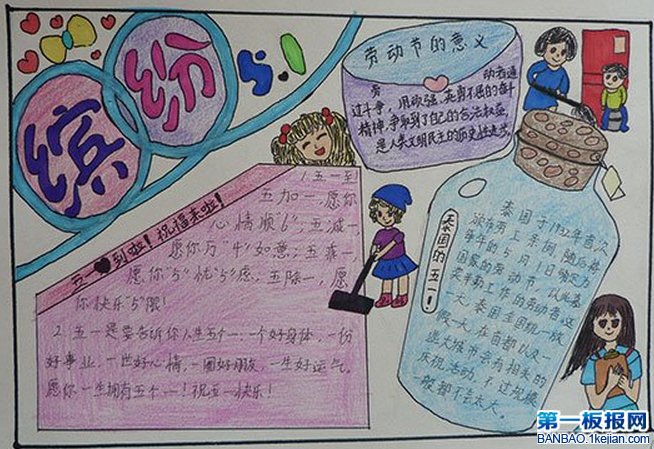 缤纷5.1
劳动节的意义
劳动者通
过斗争,用顽强、英勇不屈的奋斗
精神,争取到了自己的合法权益,
是人类文明民主的历史性进步。
五一到啦!祝福来啦!
1.五一到
五加一,愿你
心情顺"6";五减一,
愿你万"4"如意;五乘一,
愿你"5"忧"5"虑;五除一,愿
你快乐"5"限!
2.五一是要告诉你人生五个一:一个好身体,一份
好事业,一世好心情,一圈好朋友,一生好运气。
愿你一生拥有五个一!祝五一快乐!
泰国的五一!
泰国于1932年首次
颁布劳工条例,随后将
每年的5月1日确定为
国家的劳动节,以此慕
奖辛勤工作的劳动者这
一天,泰国全国统一放
假一天,在首都以及一
些大城市会有相关的
庆祝活动,不过规模
般都不会太大。
第一板报网
BANBAO.1kejian.com